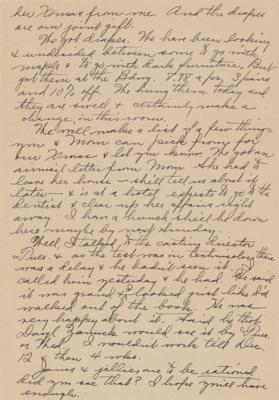 her Xmas from me. And the drapes
are our joint gift.
We got drapes. We have been looking
& undecided between some to go with
maple & to go with dark furniture. But
got them at the Bdwy. 7.98 a pr, 3 pairs
and 10% off. We hung them today and
they are swell & certainly make a
change in this room.
We will make a list of a few things
you & Mom can pick from for
our Xmas & let you know. We got an
airmail letter from Mom. She had to
leave her house - she'll tell us about it
later - & is at a hotel, expects to go to the
dentist & clear up her affairs right
away. I have a hunch she'll be down
here maybe by next Sunday.
Well, I talked to the casting director
Tues. & as the test was in technicolor there
was a delay & he hadn't seen it. So I
called him yesterday & he had. He said
it was grand & I looked just like I'd
walked out of the book. He was
very happy about it. Said he that
Daryl Zanuck would see it by Tues.
or Wed. I wouldn't work till Dec.
12 & then 4 wks.
Jams & jellies are to be rationed
did you see that? I hope you'll have
enough.